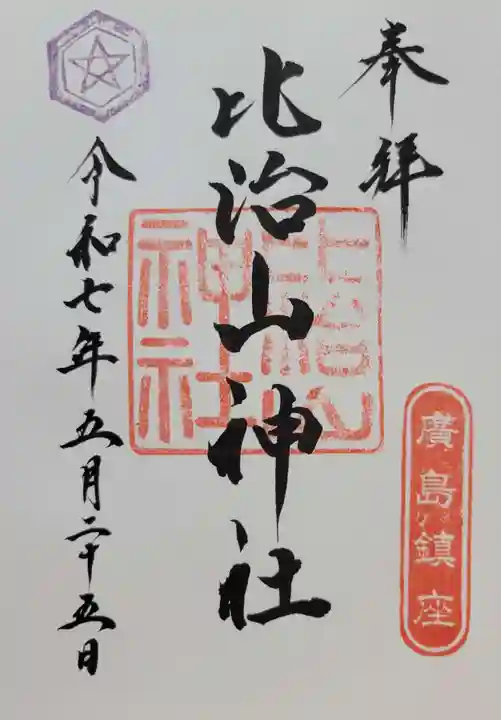 奉拜
廣島鎮座
比治山神社
比治山
神社
令和七年五月二十五日